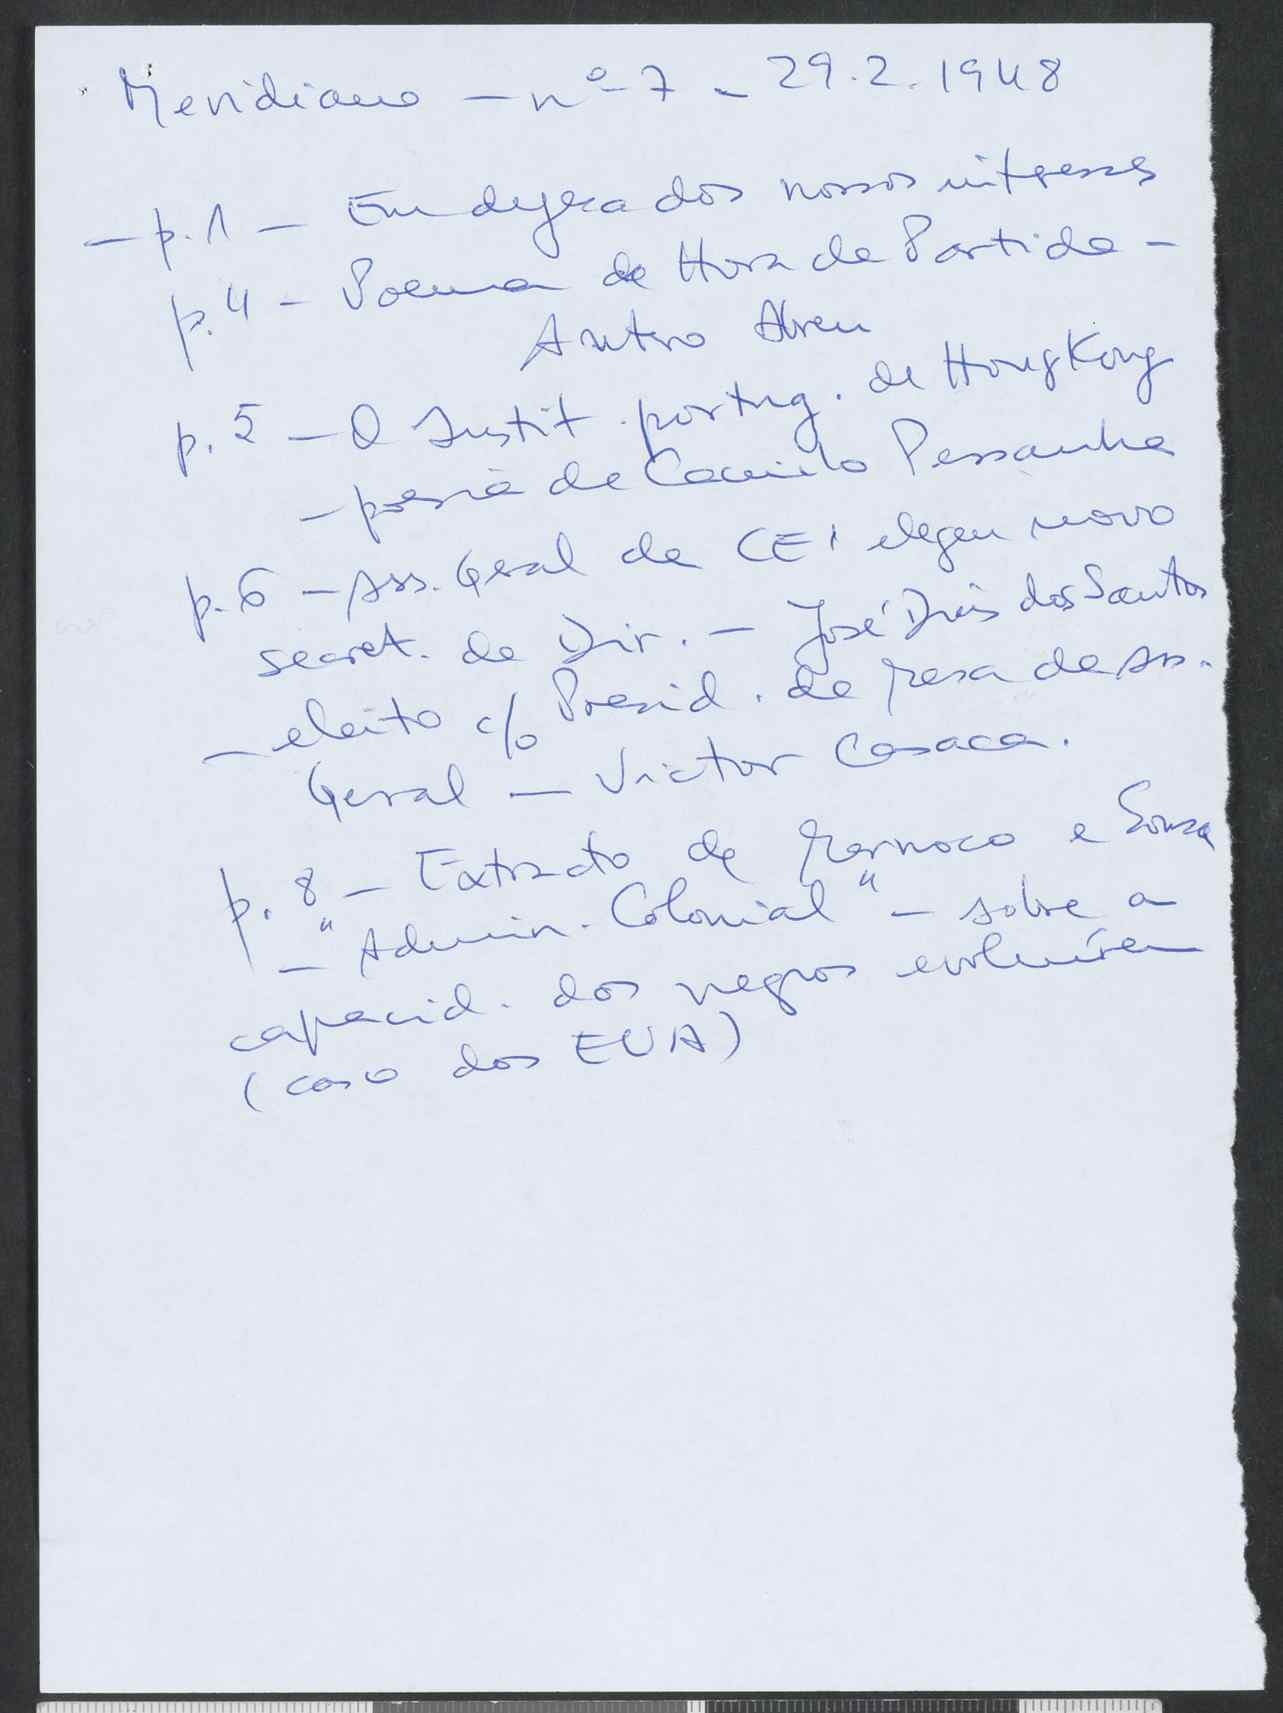 Meridiano - nº 7 - 29.2.1948
- p. 1 - Em defesa dos nossos interesses
p. 4 - Poema da Hora da Partida -
Antero Abreu
p. 5 - O Instit. portug. de Hong Kong
- poesia de Camilo Pessanha
p. 6 - Ass. Geral da CEI elegeu novo
secret. da Dir. - José Dias dos Santos
- eleito c/o Presid. da Mesa da Ass.
Geral - Victor Casaca.
p. 8 - Extracto de Marnoco e Souza
- "Admin. Colonial" - sobre a
capacid. dos negros evoluírem
(caso dos EUA)